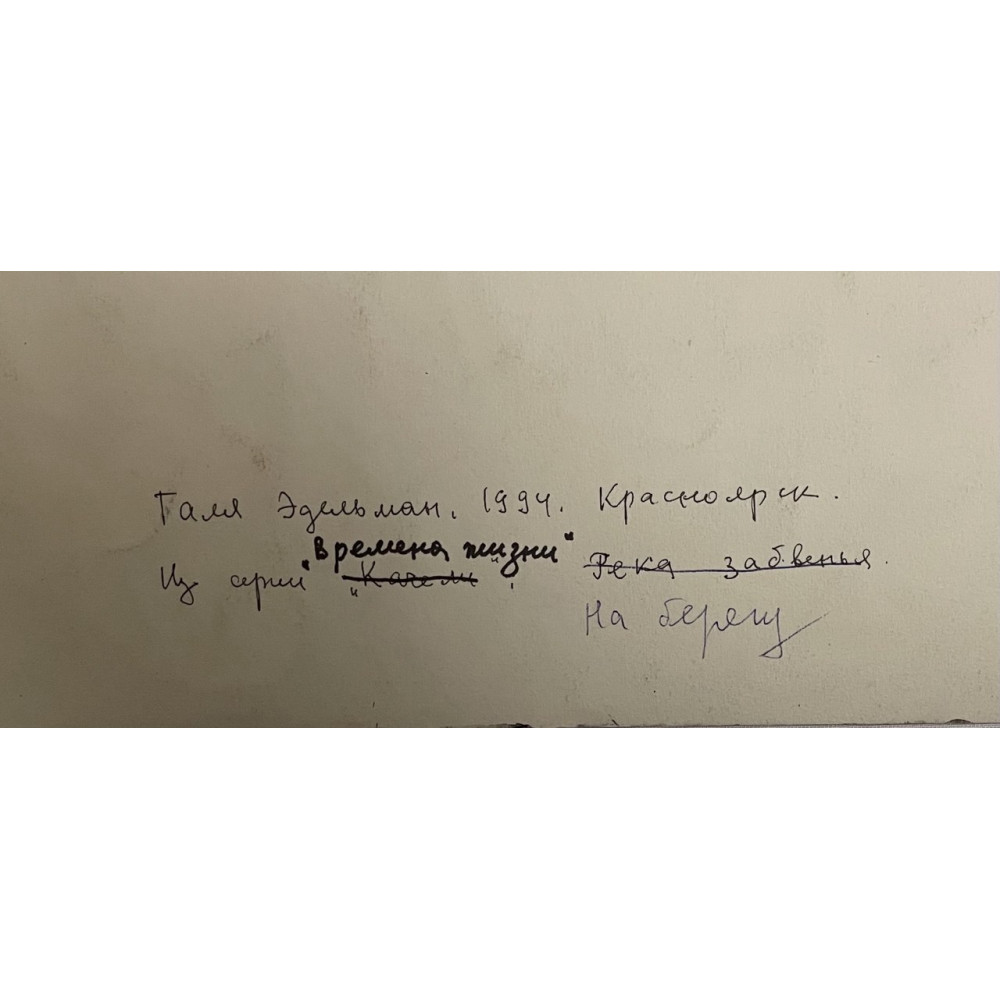 Галя Эдельман. 1994. Красноярск.
Из серии "Времена жизни" "Качели", Река забвенья.
На берегу